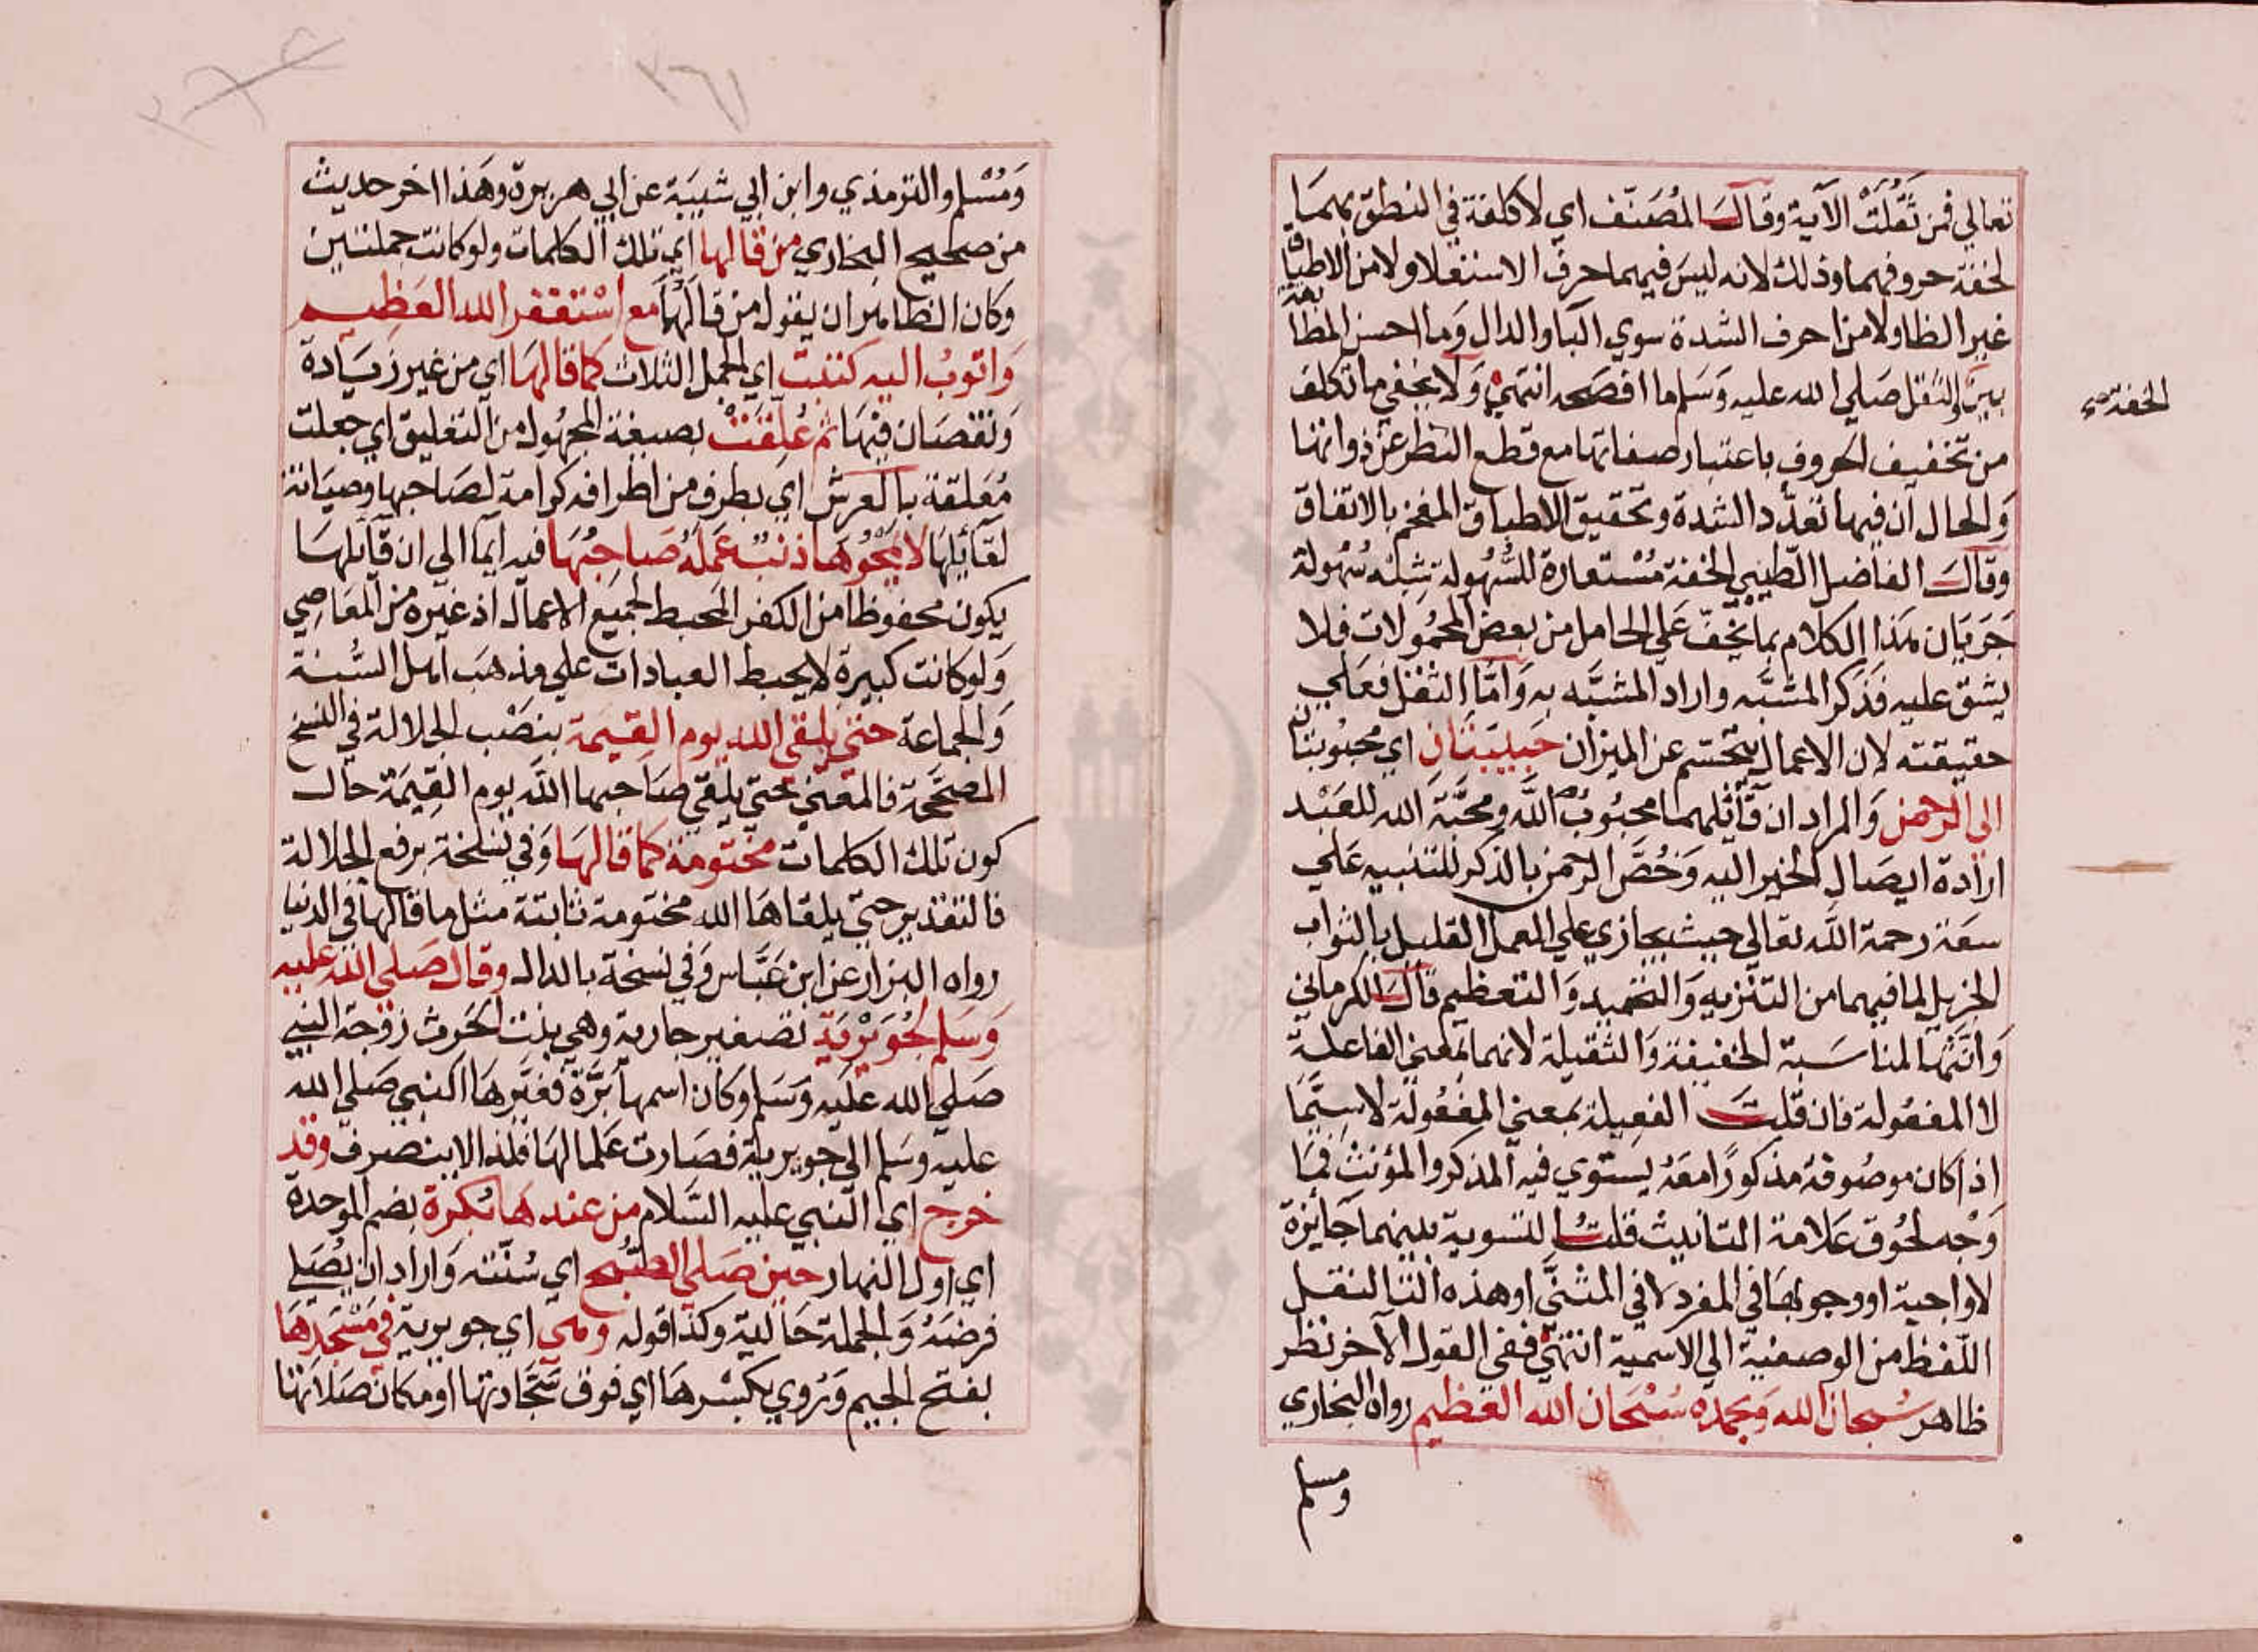 تعالى فمن ثَقُلَتْ الآية وقال المُصَنّف اي لا كلفة في النطق بهمَا
لخفة حروفهما وذلك لانه ليسَ فيهما حرف الاستعلا ولا من الاطباق
غير الظا ولا من احرف الشدة سوي البا والدال وَما احسن المطابقة
بين والثقل صلي الله عليه وَسَلم ما افصحه انتهي وَلا يخفي ما تكلف
الخفة صح
من تخفيف الحروف باعتبار صفاتها مع قطع النظر عن ذواتها
وَالحال ان فيها تعدّد الشدة وتحقيق الاطباق المفخم بالاتفاق
وقال الفاضل الطّيبي الخفة مُسْتعارة للسُّهولة شبّه سُهولة
جَرَيَان هَذا الكلام بما يخفّ عَلي الحامل من بعض المحمُولات فلا
يشق عليه فذكر المشبَّه واراد المشبَّه به وَامّا الثقل فعَلي
حقيقته لان الاعمال تتجسّم عن الميزان حَبيبَتَان اي محبُوبتان
الى الرحمن وَالمراد ان قَآئلهما محبُوبُ اللَّه ومحبَّة الله للعَبْد
ارادة ايصال الخير اليه وَخُصَّ الرحمن بالذكر للتنبيه عَلي
سعَة رحمة اللَّه تعَالى حيث يجازي علي العمل القليل بالثواب
الجزيل لما فيهما من التنزيه وَالتحميد وَالتعظيم قال الكرماني
وَانَّثهَا لمناسَبة الخفيفة وَالثقيلة لانهما بمعني الفاعلة
لا المفعُولة فان قلت الفعِيلة بمعني المفعُولة لاسِيَّمَا
اذا كان موصُوفهُ مذكورًا معَهُ يستوي فيه المذكر والمؤنث فمَا
وَجْه لحُوق عَلامة التانيث قلتُ التسوية بينهما جَآئزة
لا واجبة او وجوبهَا في المفرد لا في المثنَّي او هذه التا لنقل
اللّفظ من الوصفيَّة الي الاسمية انتهَي ففي القول الآخر نظر
ظاهر سُبحان الله وَبحمده سُبْحَان الله العَظيم رواه البخاري
ومسلم
٢٦١
وَمُسْلم والترمذي وابن ابي شيبَة عن ابي هريرة وهَذا اخر حديث
من صحيح البخاري من قالها اي تلك الكلمات ولو كانت جملتين
وكان الظاهر ان يقول من قالهُما مع اسْتغفر الله العَظِيم
وَاتوبُ اليه كتبت اي الجمل الثلاث كما قالهَا اي من غير زيَادة
وَنقصَان فيْهَا ثم عُلّقَتْ بصيغة المجهُول من التعليق اي جعلت
مُعَلقة بالعرش اي بطرف من اطرافه كرامة لصَاحبها وصيَانة
لقآئِلهَا لا يَمْحُوهَا ذنبٌ عَملهُ صَاحِبُهَا فيه ايمآ الي ان قآئلهَا
يكون محفوظا من الكفر المحبط لجميْع الاعمال اذ غيره من المَعَاصِي
وَلو كانت كبيرة لا يحبط العبادات علي مذهَب اَهل السُّنة
وَالجماعة حتي يلقى الله يوم القِيمَة بنصْب الجلالة في النسخ
المصَحَّحة فالمعني حتي يلقي صَاحبها اللَّه يوم القِيمَة حال
كون تلك الكلمات مختومة كما قالهَا وَفي نسخة برفع الجلالة
فالتقدير حتي يلقاهَا الله مختومة ثابتة مثل ما قالها في الدنيا
رواه البزار عن ابن عَبَّاس وَفي نسخة بالدال وقال صَلي الله عَليه
وَسَلم لجُوَيْريَة تصغير جارية وهي بنت الحَرث زوجة النبي
صَلي الله عليه وَسَلم وكان اسمها بَرَّة فغيّرهَا النبي صَلي الله
عليه وسَلم الي جويرية فصَارت عَلما لهَا فلذا لا ينصرف وقد
خرج اي النبي عليه السَّلام من عندهَا بُكرة بضم الموحدة
اي اول النهار حين صَلي الصُّبح اي سُنّته وَاراد ان يُصَلي
فرضَهُ وَالجملة حَالية وكذا قوله وهي اي جويرية في مَسْجدهَا
بفتح الجيم وَيُروي بكسْرهَا اي فوق سَجّادتها او مكان صَلاتها